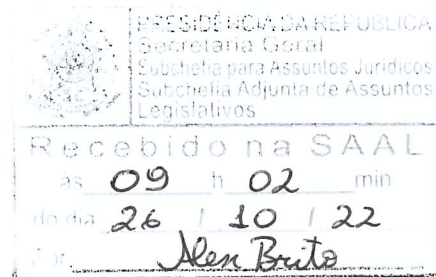 PRESIDÊNCIA DA REPÚBLICA
Secretaria Geral
Subchefia para Assuntos Jurídicos
Subchefia Adjunta de Assuntos
Legislativos
Recebido na SAAL
às 09 h 02 min
do dia 26 / 10 / 22
Por Alex Brito